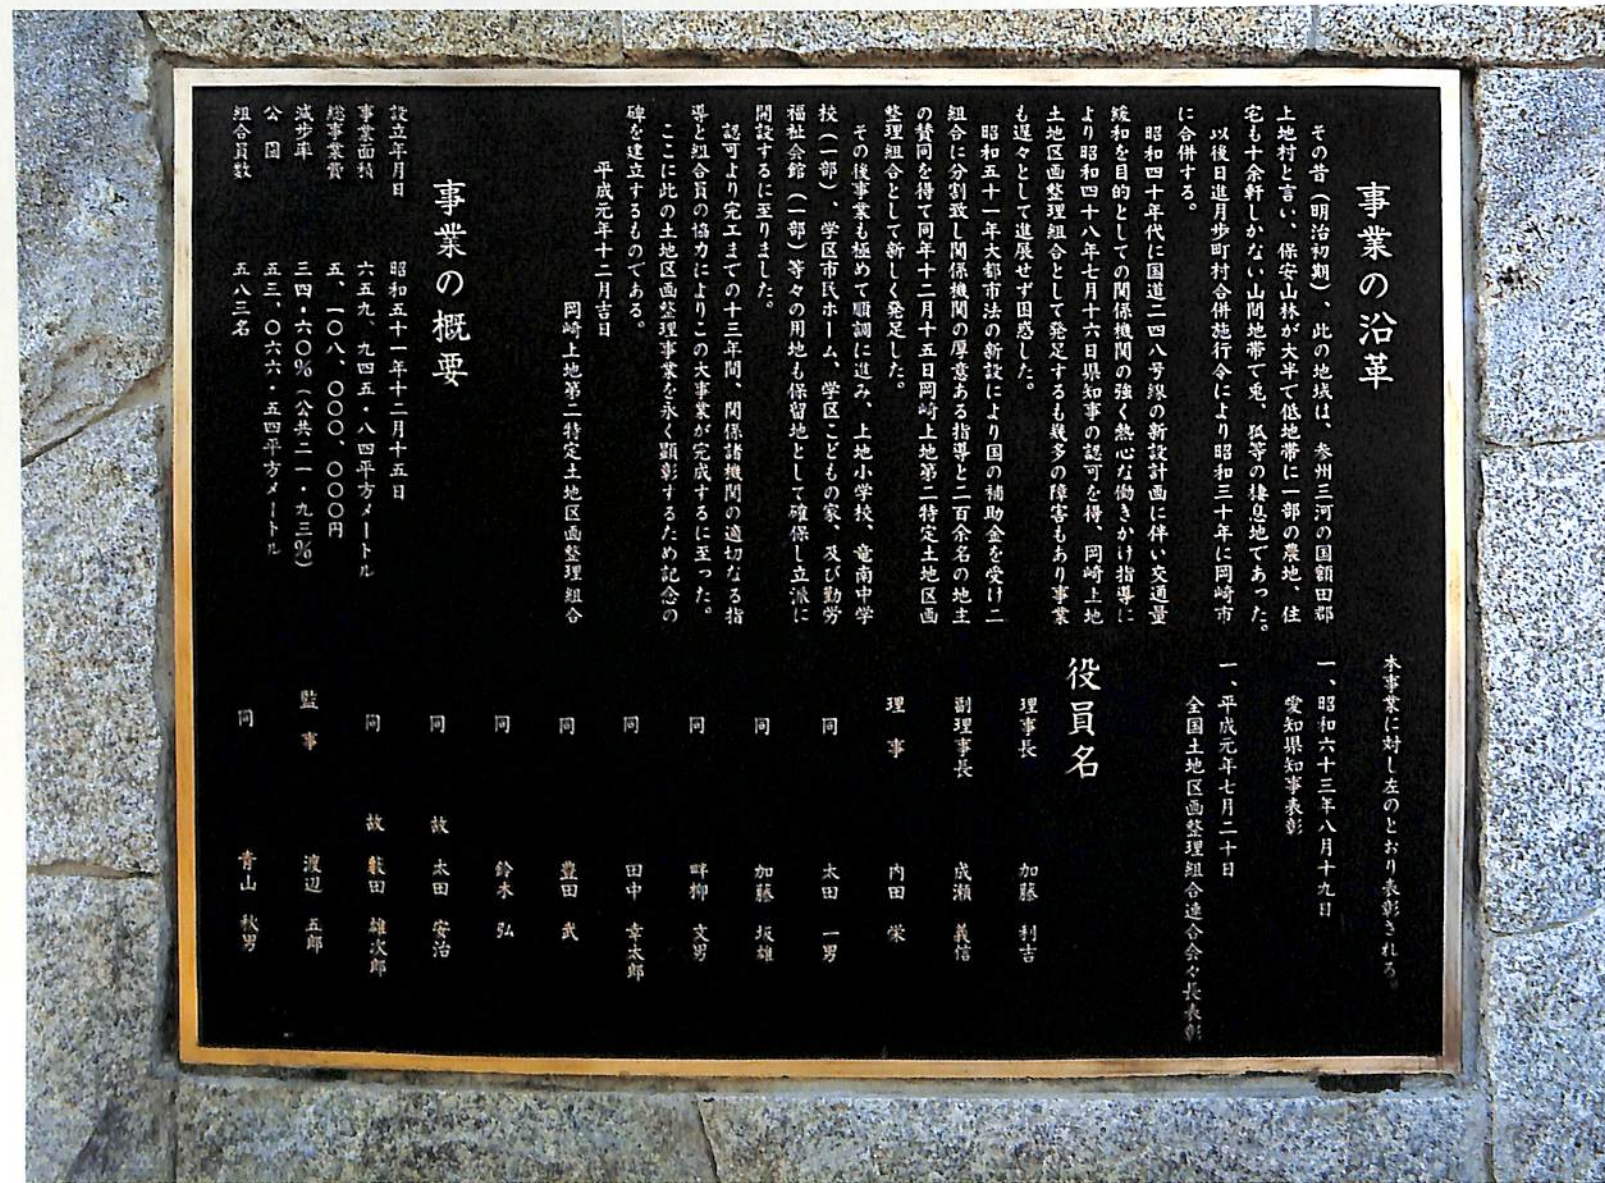 事業の沿革
その昔（明治初期）、此の地域は、参州三河の国額田郡
上地村と言い、保安山林が大半で低地帯に一部の農地、住
宅も十余軒しかない山間地帯で兎、狐等の棲息地であった。
以後日進月歩町村合併施行令により昭和三十年に岡崎市
に合併する。
昭和四十年代に国道二四八号線の新設計画に伴い交通量
緩和を目的としての関係機関の強く熱心な働きかけ指導に
より昭和四十八年七月十六日県知事の認可を得、岡崎上地
土地区画整理組合として発足するも幾多の障害もあり事業
も遅々として進展せず困惑した。
昭和五十一年大都市法の新設により国の補助金を受け二
組合に分割致し関係機関の厚意ある指導と二百余名の地主
の賛同を得て同年十二月十五日岡崎上地第二特定土地区画
整理組合として新しく発足した。
その後事業も極めて順調に進み、上地小学校、竜南中学
校（一部）、学区市民ホーム、学区こどもの家、及び勤労
福祉会館（一部）等々の用地も保留地として確保し立派に
開設するに至りました。
認可より完工までの十三年間、関係諸機関の適切なる指
導と組合員の協力によりこの大事業が完成するに至った。
ここに此の土地区画整理事業を永く顕彰するため記念の
碑を建立するものである。
平成元年十二月吉日
岡崎上地第二特定土地区画整理組合
事業の概要
設立年月日　昭和五十一年十二月十五日
事業面積　六五九、九四五・八四平方メートル
総事業費　五、一〇八、〇〇〇、〇〇〇円
減歩率　三四・六〇％（公共二一・九三％）
公園　五三、〇六六・五四平方メートル
組合員数　五八三名
本事業に対し左のとおり表彰される。
一、昭和六十三年八月十九日
愛知県知事表彰
一、平成元年七月二十日
全国土地区画整理組合連合会々長表彰
役員名
理事長　加藤　利吉
副理事長　成瀬　義信
理事　内田　栄
同　太田　一男
同　加藤　坂雄
同　畔柳　文男
同　田中　幸太郎
同　豊田　武
同　鈴木　弘
同　故　太田　安治
同　故　薮田　雄次郎
監事　渡辺　五郎
同　青山　秋男